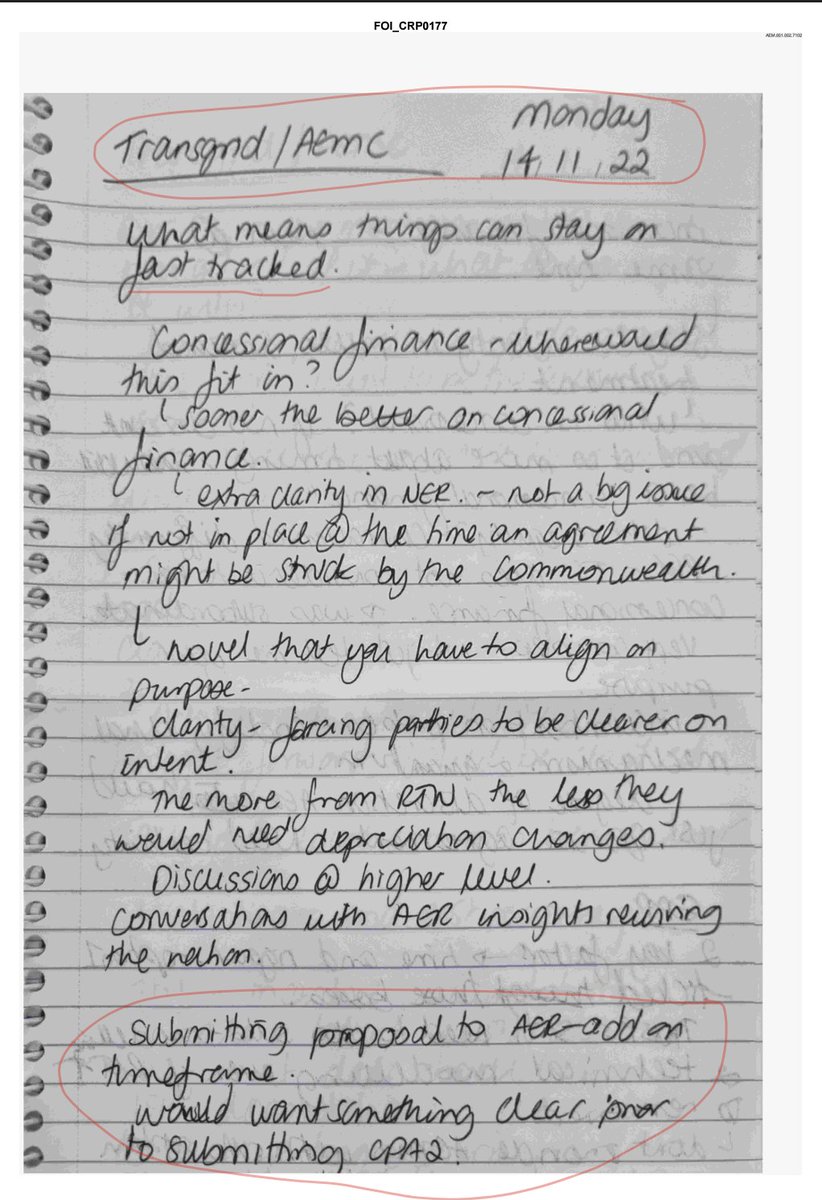 FOI_CRP0177
AEM.001.002.7102
Transgrid/AEMC
Monday
14, 11, 22
what means things can stay on
fast tracked.
Concessional finance - where would
this fit in?
sooner the better on concessional
finance.
extra clarity in NER. - not a big issue
if not in place @ the time an agreement
might be struck by the Commonwealth.
novel that you have to align on
purpose -
clarity - forcing parties to be clearer on
intent.
The more from RTN the less they
would need depreciation changes.
Discussions @ higher level.
conversations with AER insights
the nation.
submitting proposal to AER - add on
timeframe.
would want something clear prior
to submitting CPA2.